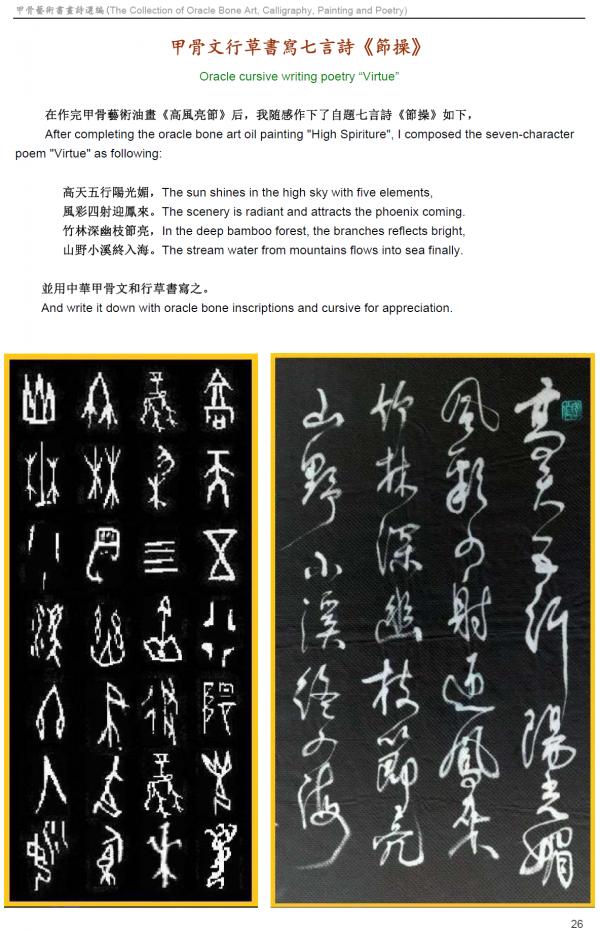 甲骨藝術書畫詩選編(The Collection of Oracle Bone Art, Calligraphy, Painting and Poetry)
甲骨文行草書寫七言詩《節操》
Oracle cursive writing poetry “Virtue”
在作完甲骨藝術油畫《高風亮節》后，我随感作下了自題七言詩《節操》如下，
After completing the oracle bone art oil painting "High Spiriture", I composed the seven-character
poem "Virtue" as following:
高天五行陽光媚，The sun shines in the high sky with five elements,
風彩四射迎鳳來。The scenery is radiant and attracts the phoenix coming.
竹林深幽枝節亮，In the deep bamboo forest, the branches reflects bright,
山野小溪終入海。The stream water from mountains flows into sea finally.
並用中華甲骨文和行草書寫之。
And write it down with oracle bone inscriptions and cursive for appreciation.
高天五行陽光媚
風彩四射迎鳳來
竹林深幽枝節亮
山野小溪終入海
26